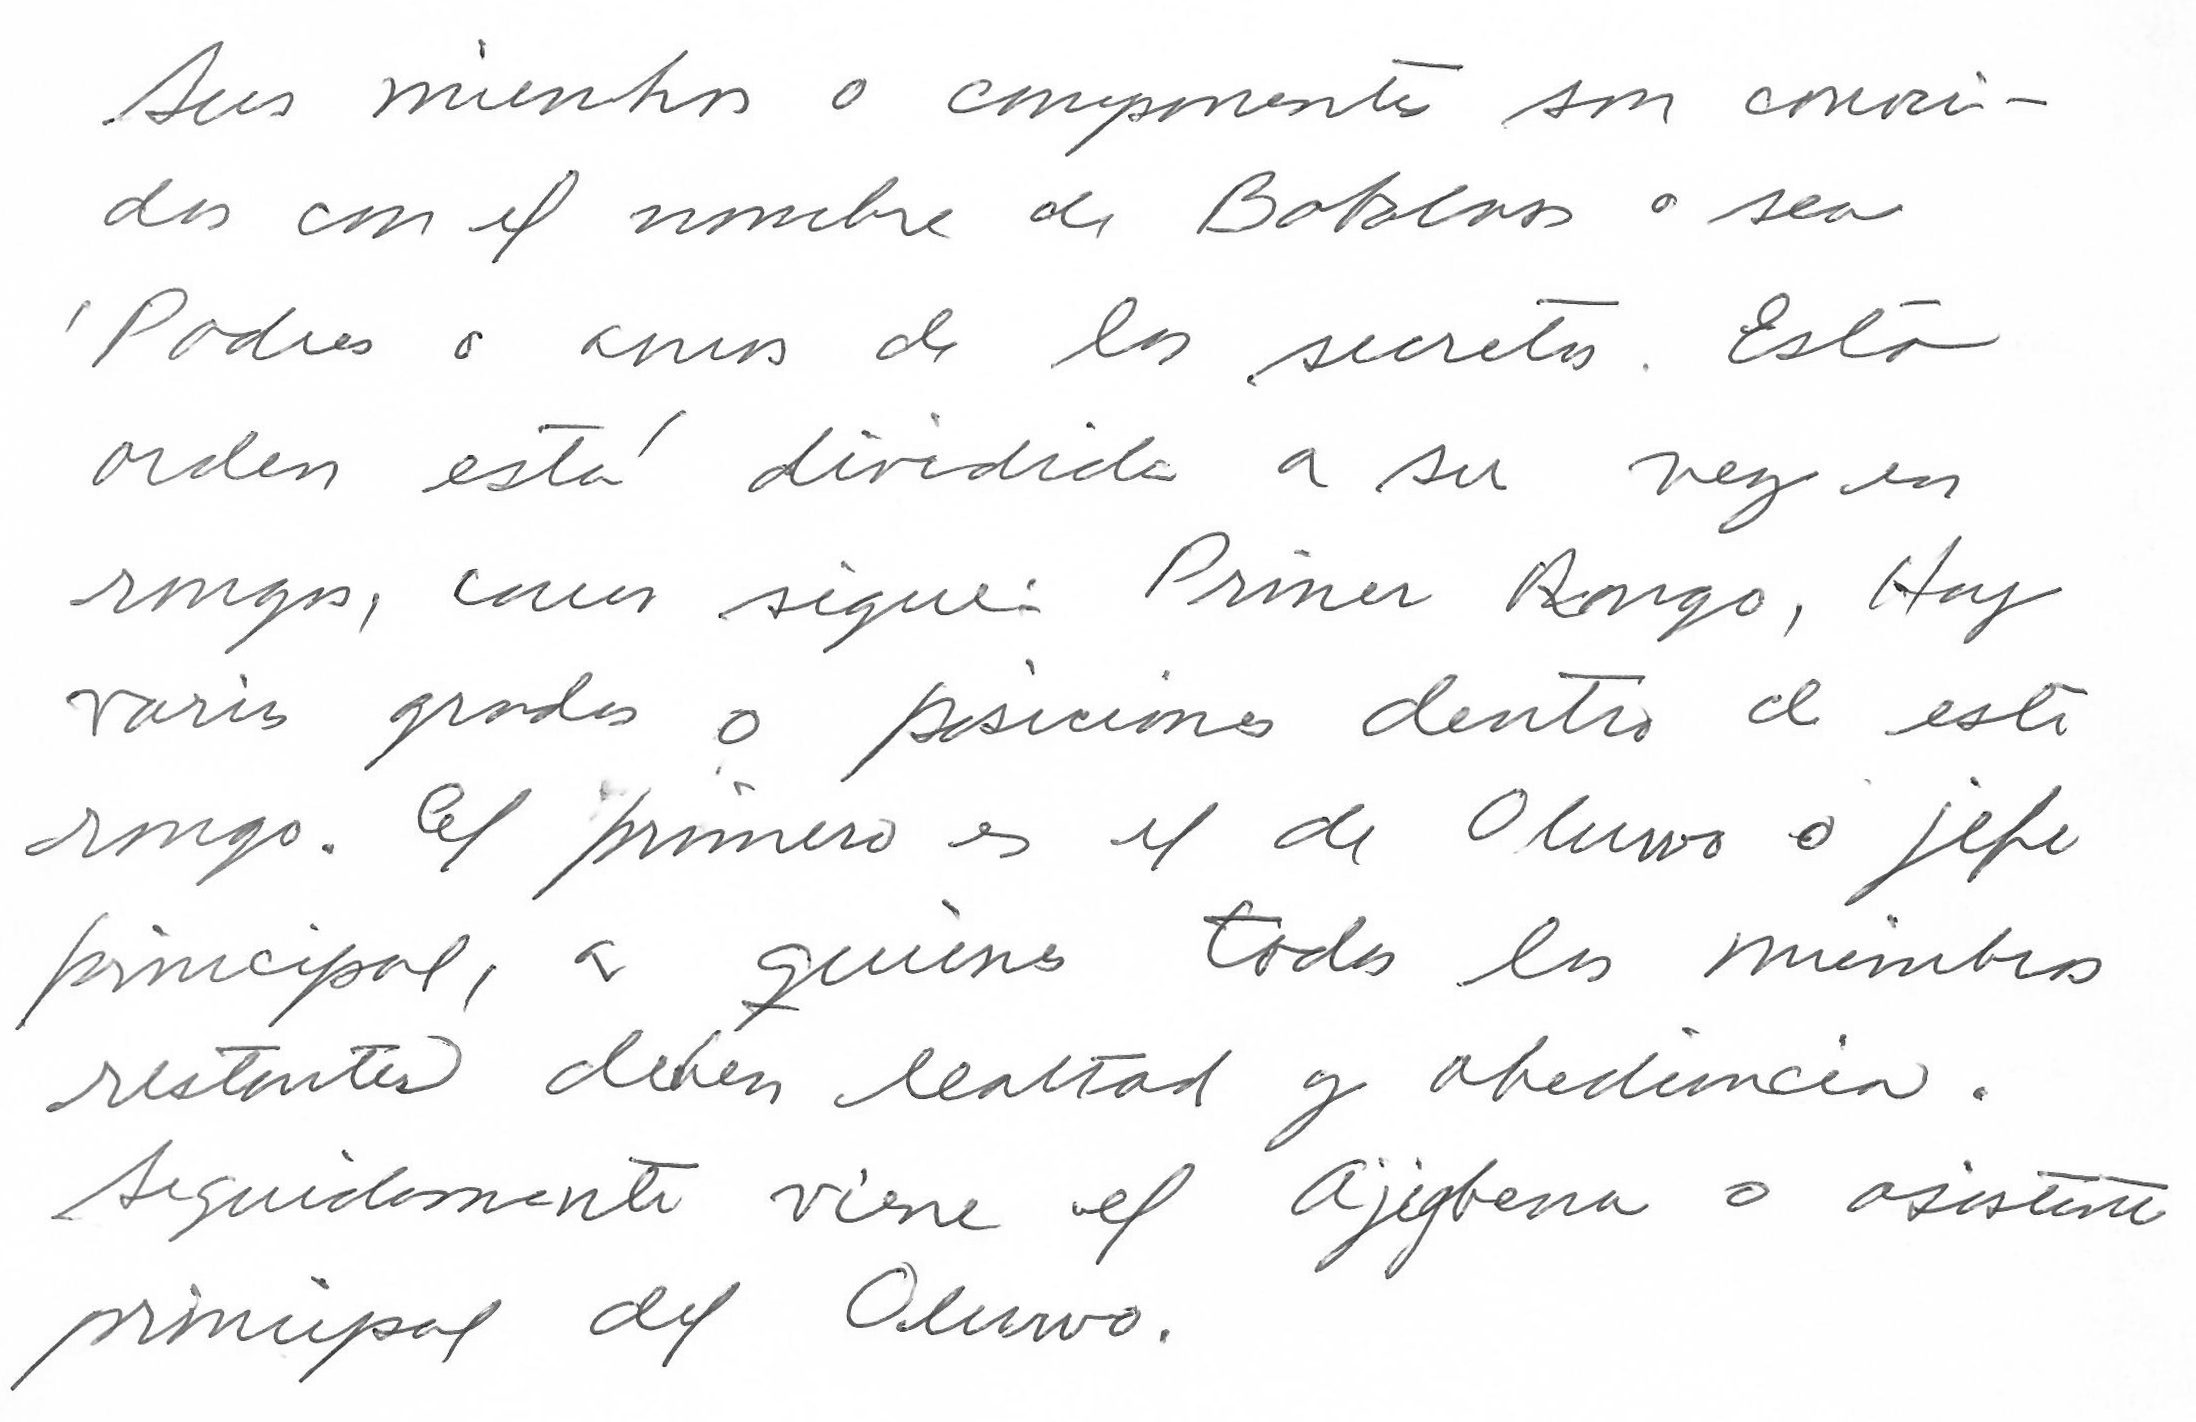 Sus miembros o componentes son conoci-
dos con el nombre de Babalaos o sea
'Padres o amos de los secretos. Esta
orden está dividida a su vez en
rangos, como sigue: Primer Rango, Hay
varios grados o posiciones dentro de este
rango. El primero es el de Oluwo o jefe
principal, a quienes todos los miembros
restantes deben lealtad y obediencia.
Seguidamente viene el Ajigbena o asistente
principal del Oluwo.